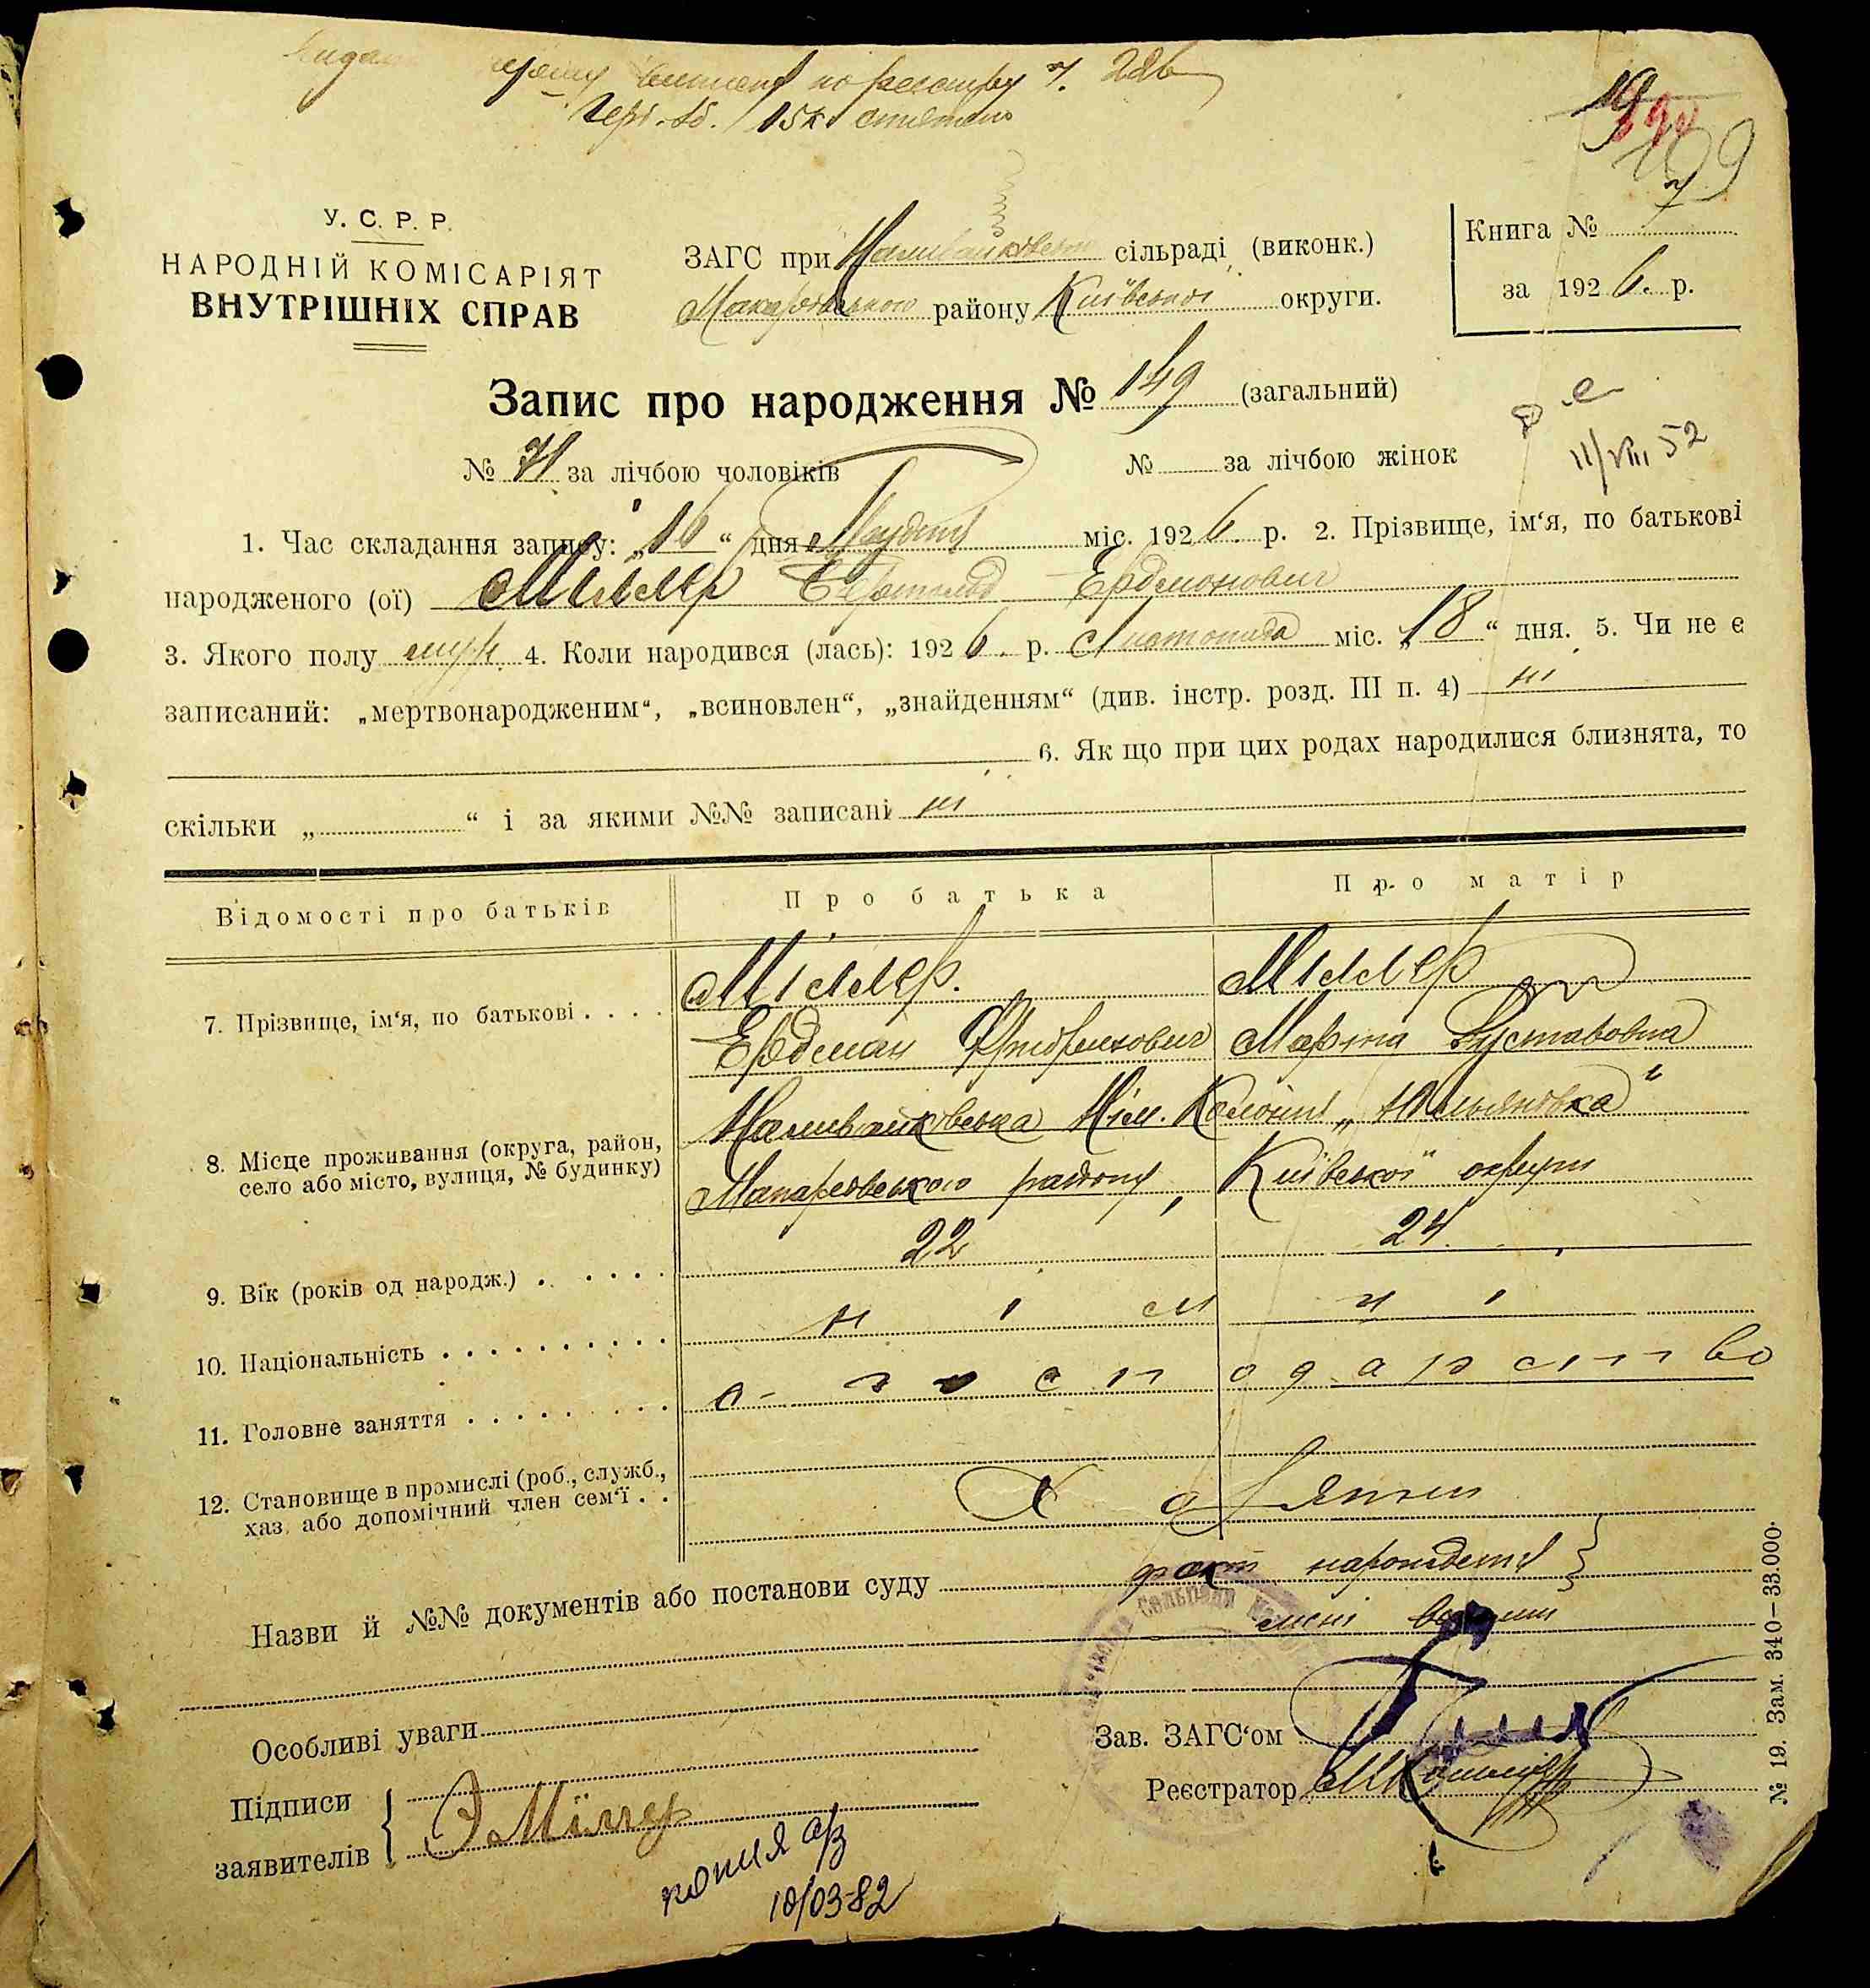 по реєстру № 226
15 к.
199
У. С. Р. Р.
НАРОДНІЙ КОМІСАРІЯТ
ВНУТРІШНІХ СПРАВ
ЗАГС при Наливайковськ сільраді (виконк.)
Макарівського району Київської округи.
Книга № 7
за 1926 р.
Запис про народження № 149 (загальний)
№ 71 за лічбою чоловіків № за лічбою жінок
11/VIII 52
1. Час складання запису: „16“ дня Грудня міс. 1926. р. 2. Прізвище, ім‘я, по батькові
народженого (ої) Міллер Бертольд Ердманович
3. Якого полу муж. 4. Коли народився (лась): 1926. р. Листопада міс. „18“ дня. 5. Чи не є
записаний: „мертвонародженим“, „всиновлен“, „знайденням“ (див. інстр. розд. III п. 4) ні
6. Як що при цих родах народилися близнята, то
скільки „ “ і за якими №№ записані ні
Відомості про батьків Про батька Про матір
7. Прізвище, ім‘я, по батькові Міллер. Міллер
Ердман Фридрихович Марта Густавовна
8. Місце проживання (округа, район, село або місто, вулиця, № будинку) Наливайковська Нім. Колонія „Юльяновка“
Макарівського району, Київської округи
9. Вік (років од народж.) 22 24
10. Національність німці
11. Головне заняття с-господарство
12. Становище в промислі (роб., служб.,
хаз. або допомічний член сем‘ї
Назви й №№ документів або постанови суду факт народження
мені
Особливі уваги
Зав. ЗАГС‘ом
Реєстратор
Підписи
заявителів
Э Міллер
копия а/з
18/03-82
№ 19. Зам. 340—33.000.